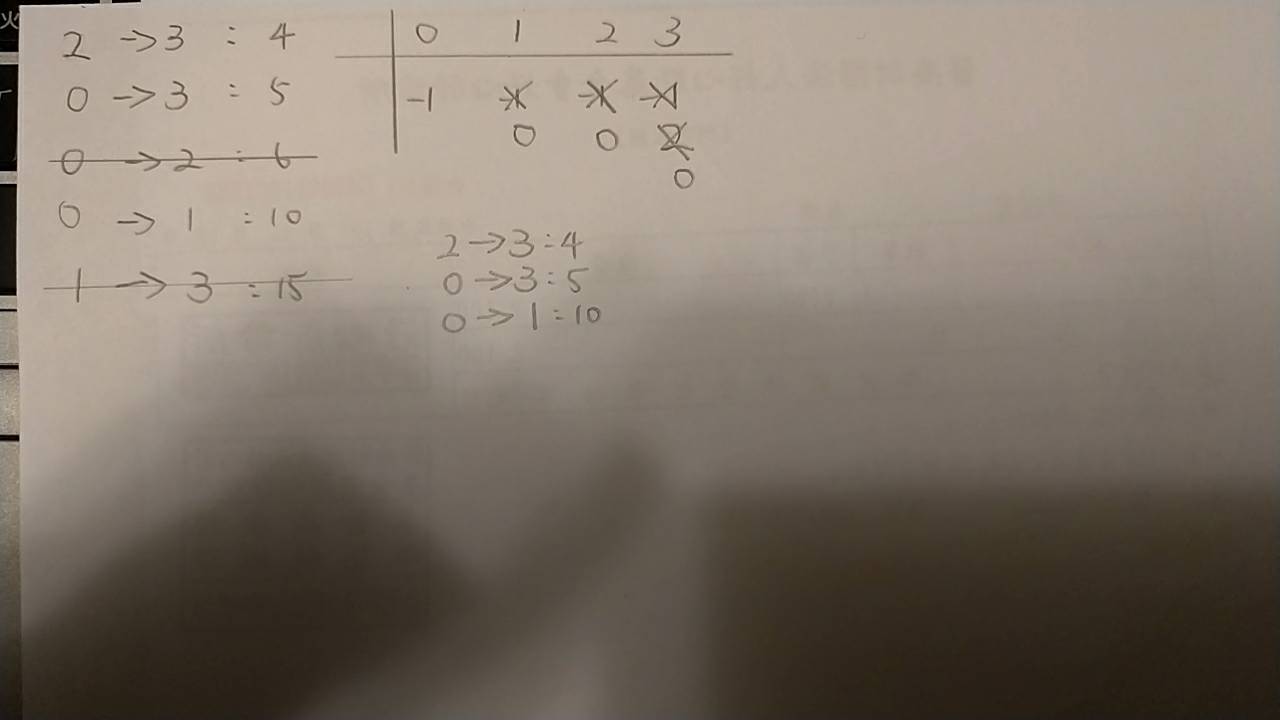 2 -> 3 : 4
0 -> 3 : 5
0 -> 2 : 6
0 -> 1 : 10
1 -> 3 : 15
0 1 2 3
-1 -1 -1 -1
0 0 2
0
2 -> 3 : 4
0 -> 3 : 5
0 -> 1 : 10